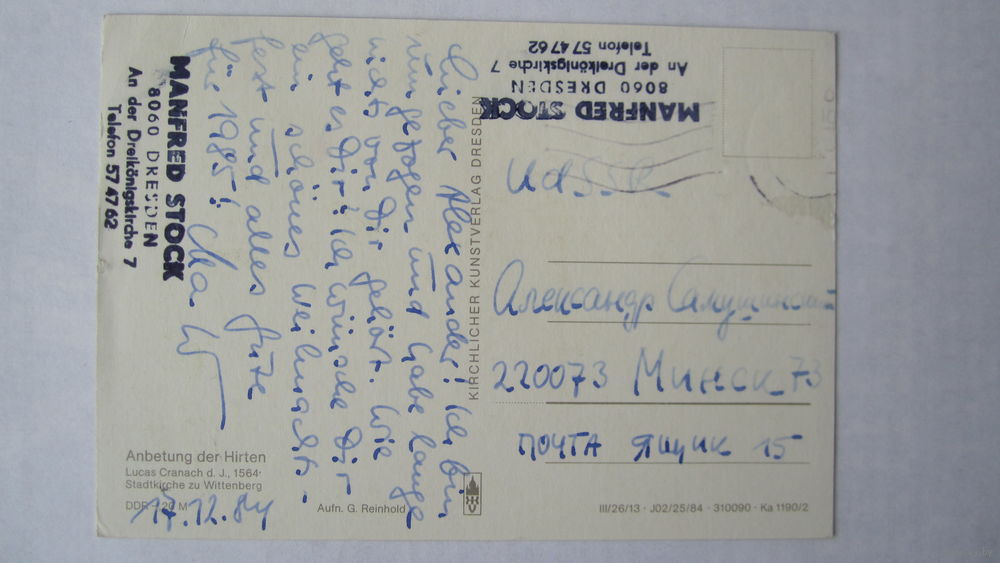 Lieber Alexander! Ich bin
umgezogen und habe lange
nichts von Dir gehört. Wie
geht es Dir? Ich wünsche Dir
ein schönes Weihnachts-
fest und alles Gute
für 1985!
MANFRED STOCK
8060 DRESDEN
An der Dreikönigskirche 7
Telefon 57 47 62
Anbetung der Hirten
Lucas Cranach d. J., 1564
Stadtkirche zu Wittenberg
DDR - 20 M
17.12.84
Aufn. G. Reinhold
KIRCHLICHER KUNSTVERLAG DRESDEN
MANFRED STOCK
8060 DRESDEN
An der Dreikönigskirche 7
Telefon 57 47 62
UdSSR
Александр
220073 Минск 73
ПОЧТА ЯЩИК 15
III/26/13 · J02/25/84 · 310090 · Ka 1190/2